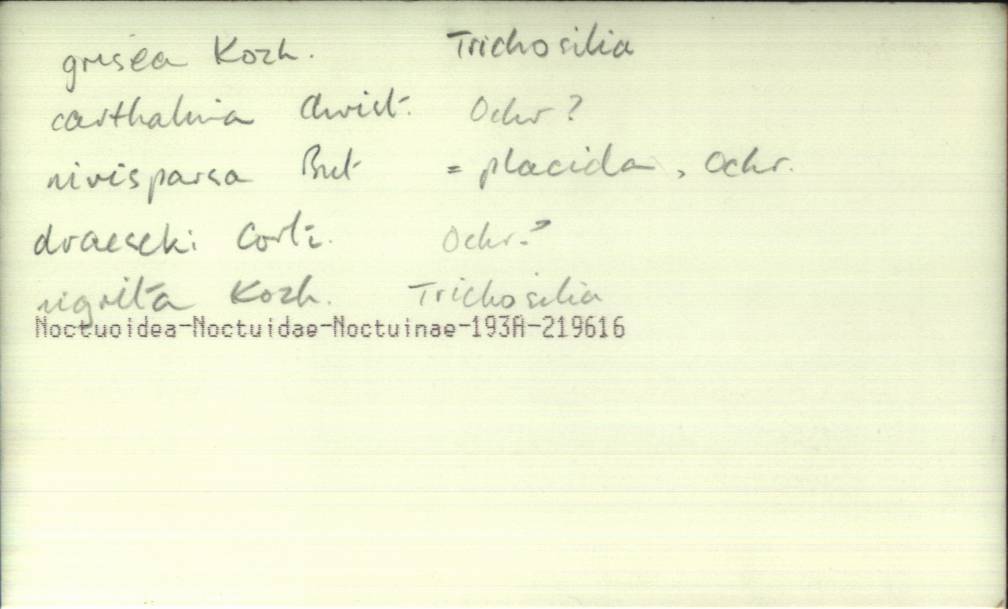 grisea Kozh. Trichosilia
carthalinia Christ. Ochr?
nivisparsa But = placida, Ochr.
draescki Corti. Ochr.?
nigrita Kozh. Trichosilia
Noctuoidea-Noctuidae-Noctuinae-193A-219616